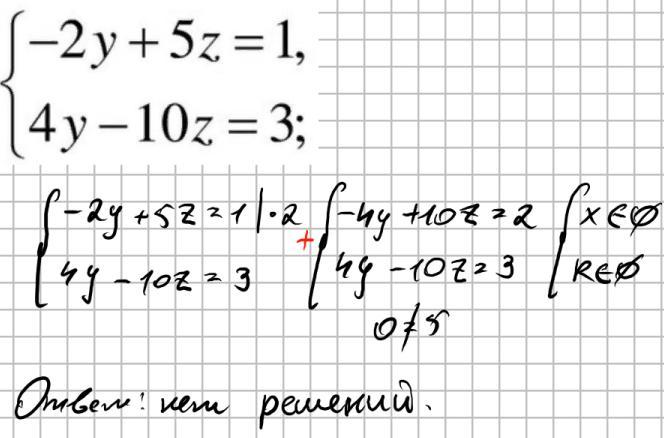 {−2y + 5z = 1,
4y − 10z = 3;
{−2y + 5z = 1 | · 2 + {−4y + 10z = 2 {x ∈ ∅
4y − 10z = 3 4y − 10z = 3 R ∈ ∅
0 ≠ 5
Ответ: нет решений.